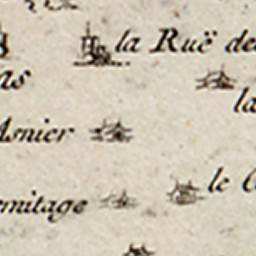 la Ruë de
as
la
Asnier
le
mitage